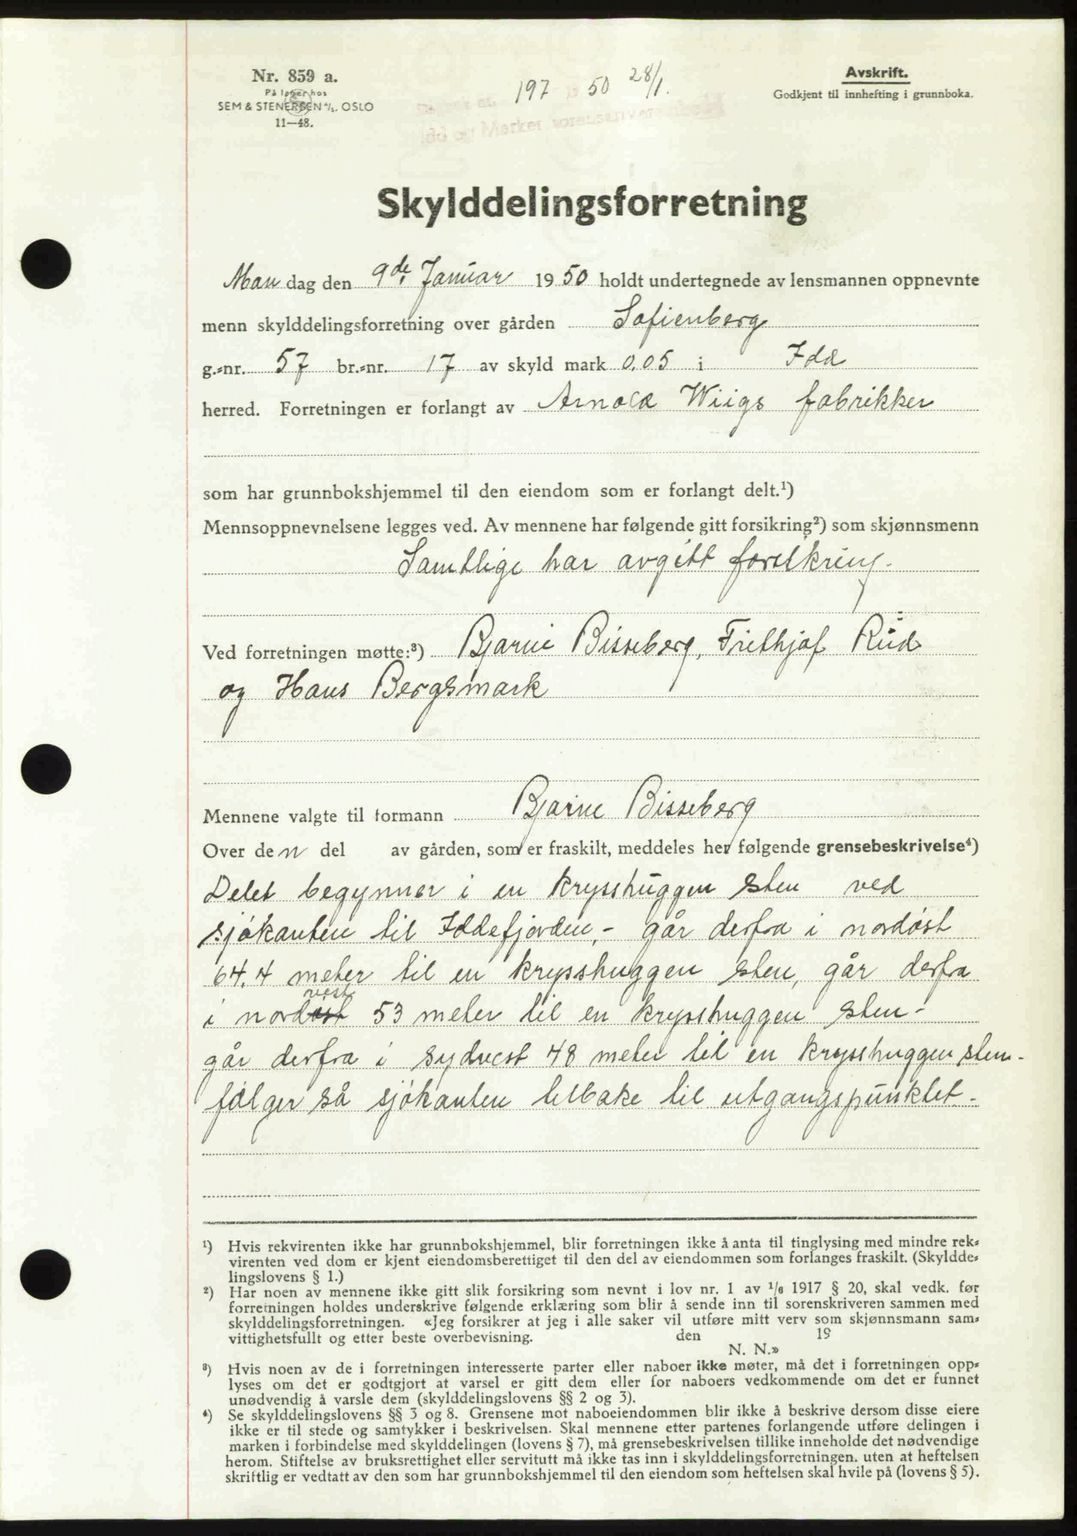 Nr. 859 a.
På lager hos
SEM & STENERSEN A/S. OSLO
11—48.
197 50 28/1.
Avskrift.
Godkjent til innhefting i grunnboka.
Skylddelingsforretning
Mandag den 9de Januar 1950 holdt undertegnede av lensmannen oppnevnte
menn skylddelingsforretning over gården Sofienberg
g.-nr. 57 br.-nr. 17 av skyld mark 0,05 i Idd
herred. Forretningen er forlangt av Arnold Wiigs fabrikker
som har grunnbokshjemmel til den eiendom som er forlangt delt.¹)
Mennsoppnevnelsene legges ved. Av mennene har følgende gitt forsikring²) som skjønnsmenn
Samtlige har avgitt forsikring.
Ved forretningen møtte:³) Bjarne Bisseberg, Frithjof Rød
og Hans Bergsmark
Mennene valgte til formann Bjarne Bisseberg
Over den del av gården, som er fraskilt, meddeles her følgende grensebeskrivelse⁴)
Delet begynner i en krysshuggen sten ved
sjøkanten til Iddefjorden,- går derfra i nordøst
64,4 meter til en krysshuggen sten, går derfra
i nordvest 53 meter til en krysshuggen sten -
går derfra i sydvest 48 meter til en krysshuggen sten -
følger så sjøkanten tilbake til utgangspunktet -
¹) Hvis rekvirenten ikke har grunnbokshjemmel, blir forretningen ikke å anta til tinglysing med mindre rek-
virenten ved dom er kjent eiendomsberettiget til den del av eiendommen som forlanges fraskilt. (Skyldde-
lingslovens § 1.)
²) Har noen av mennene ikke gitt slik forsikring som nevnt i lov nr. 1 av 1/6 1917 § 20, skal vedk. før
forretningen holdes underskrive følgende erklæring som blir å sende inn til sorenskriveren sammen med
skylddelingsforretningen. «Jeg forsikrer at jeg i alle saker vil utføre mitt verv som skjønnsmann sam-
vittighetsfullt og etter beste overbevisning. den 19
N. N.»
³) Hvis noen av de i forretningen interesserte parter eller naboer ikke møter, må det i forretningen opp-
lyses om det er godtgjort at varsel er gitt dem eller for naboers vedkommende om det er funnet
unødvendig å varsle dem (skylddelingslovens §§ 2 og 3).
⁴) Se skylddelingslovens §§ 3 og 8. Grensene mot naboeiendommen blir ikke å beskrive dersom disse eiere
ikke er til stede og samtykker i beskrivelsen. Skal mennene etter partenes forlangende utføre delingen i
marken i forbindelse med skylddelingen (lovens § 7), må grensebeskrivelsen tillike inneholde det nødvendige
herom. Stiftelse av bruksrettighet eller servitutt må ikke tas inn i skylddelingsforretningen. uten at heftelsen
skriftlig er vedtatt av den som har grunnbokshjemmel til den eiendom som heftelsen skal hvile på (lovens § 5).